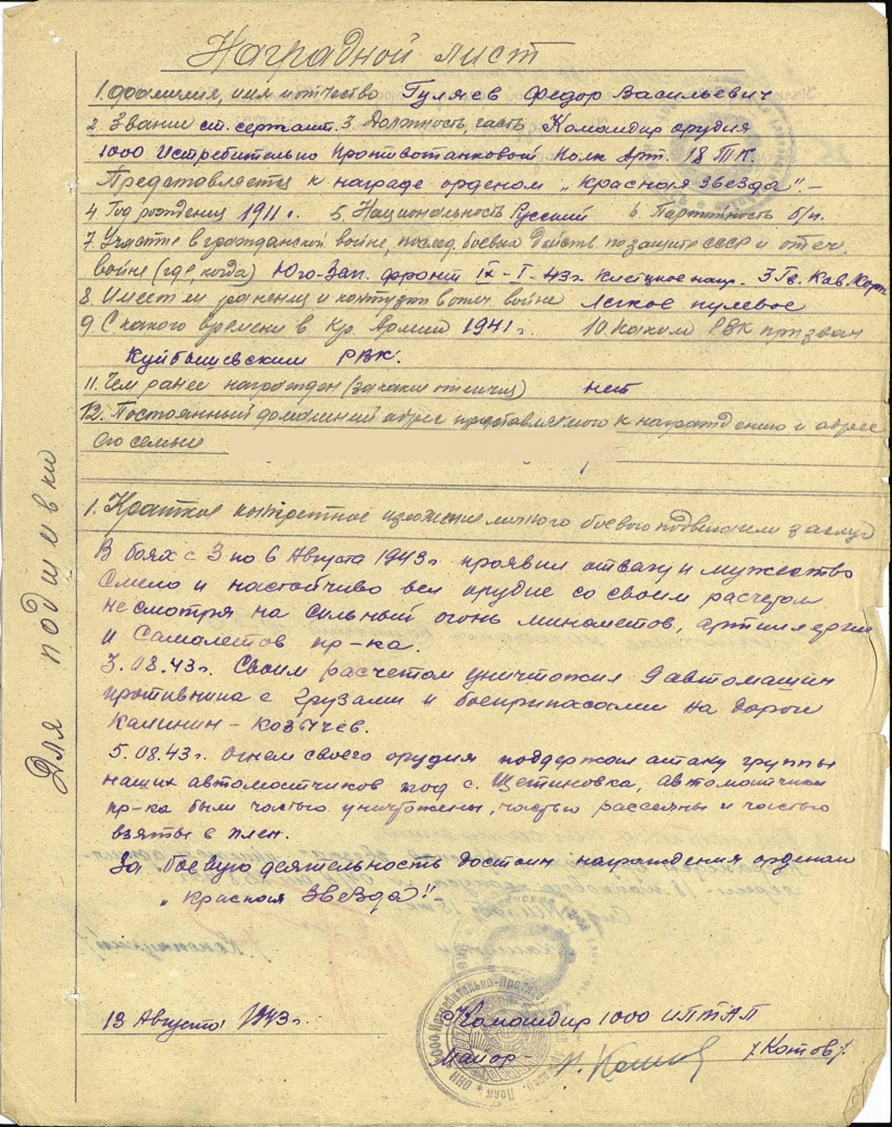 Наградной лист
1. Фамилия, имя и отчество Гуляев Федор Васильевич
2. Звание ст. сержант. 3. Должность, часть Командир орудия
1000 Истребительно Противотанковой Полк Арт. 18 ТК.
Представляется к награде орденом „Красная Звезда".-
4. Год рождения 1911 г. 5. Национальность Русский 6. Партийность б/п.
7. Участие в гражданской войне, послед. боевых действ. по защите СССР и отеч.
войне (где, когда) Юго-Зап. фронт IX-I-43г. Клетцкое напр. 3 Гв. Кав. Корп
8. Имеет ли ранения и контузии в отеч. войне Легкое пулевое
9. С какого времени в Кр. Армии 1941 г. 10. Каким РВК призван
Куйбышевским РВК.
11. Чем ранее награжден (за какие отличия) нет
12. Постоянный домашний адрес представляемого к награждению и адрес
его семьи
1. Краткое конкретное изложение личного боевого подвига или заслуг
В боях с 3 по 6 Августа 1943г. проявил отвагу и мужество
Смело и настойчиво вел орудие со своим расчетом
несмотря на сильный огонь минометов, артиллерии
и самолетов пр-ка.
3.08.43г. Своим расчетом уничтожил 9 автомашин
противника с грузами и боеприпасами на дороги
Калинин - Козычев.
5.08.43г. Огнем своего орудия поддержал атаку группы
наших автоматчиков под с. Щетиновка, автоматчики
пр-ка были частью уничтожены, частью рассеяны и частью
взяты в плен.
За боевую деятельность достоин награждения орденом
„Красная Звезда"!
13 Августа 1943г. Командир 1000 ИПТАП
Майор - /Котов/.
Для подшивки